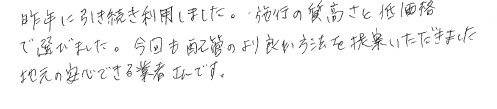 昨年に引き続き利用しました。施行の質高さと低価格
で選びました。今回も配管のより良い方法を提案いただきました
地元の安心できる業者さんです。